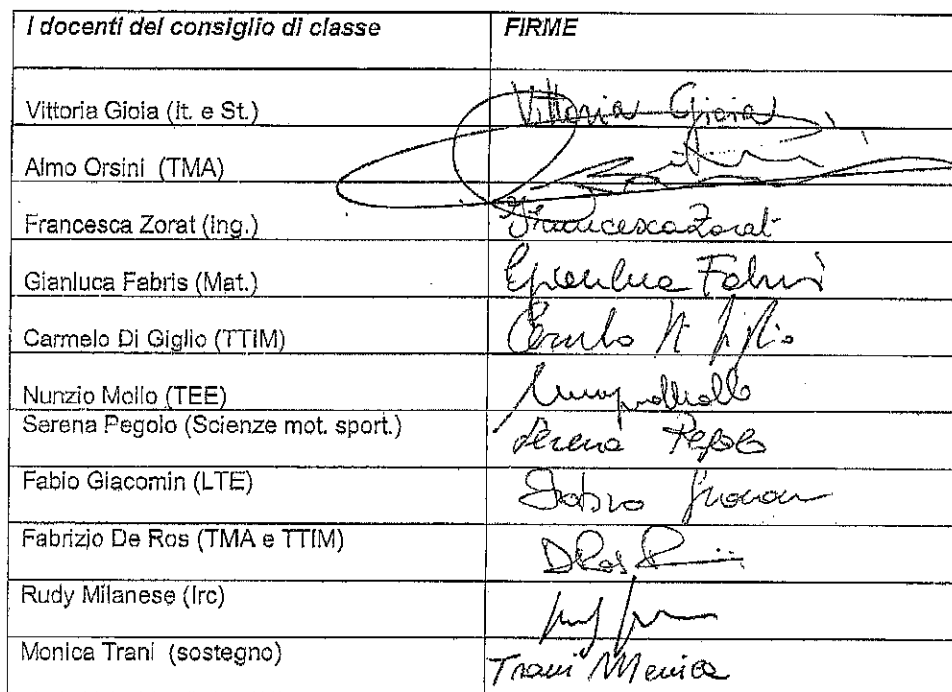 I docenti del consiglio di classe FIRME
Vittoria Gioia (It. e St.) Vittoria Gioia
Almo Orsini (TMA)
Francesca Zorat (Ing.) Francesca Zorat
Gianluca Fabris (Mat.) Gianluca Fabris
Carmelo Di Giglio (TTIM) Carmelo Di Giglio
Nunzio Mollo (TEE) Nunzio Mollo
Serena Pegolo (Scienze mot. sport.) Serena Pegolo
Fabio Giacomin (LTE) Fabio
Fabrizio De Ros (TMA e TTIM) De Ros
Rudy Milanese (Irc)
Monica Trani (sostegno) Trani Monica